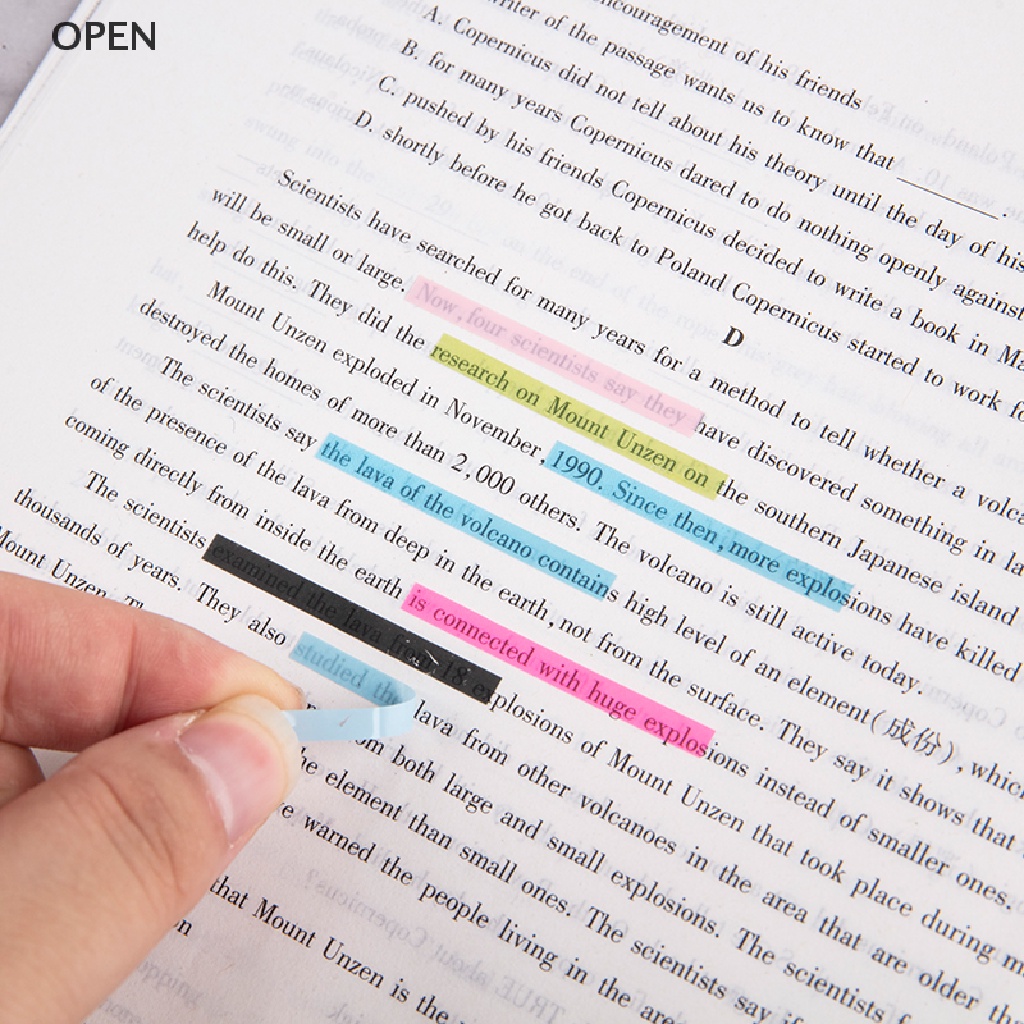 OPEN
ncouragement of his friends
riter of the passage wants us to know that ______.
A. Copernicus did not tell about his theory until the day of his
B. for many years Copernicus dared to do nothing openly against
C. pushed by his friends Copernicus decided to write a book in Ma
D. shortly before he got back to Poland Copernicus started to work fo
D
Scientists have searched for many years for a method to tell whether a volca
will be small or large. Now, four scientists say they have discovered something in la
help do this. They did the research on Mount Unzen on the southern Japanese island
Mount Unzen exploded in November, 1990. Since then, more explosions have killed
destroyed the homes of more than 2,000 others. The volcano is still active today.
The scientists say the lava of the volcano contains high level of an element(成份), which
of the presence of the lava from deep in the earth, not from the surface. They say it shows that
coming directly from inside the earth is connected with huge explosions instead of smaller ones.
The scientists examined the lava from 18 explosions of Mount Unzen that took place during m
thousands of years. They also studied the lava from other volcanoes in the area that are older th
Mount Unzen. Th om both large and small explosions. The scientists f
he element than small ones. The scientists say if
e warned the people living in the are
that Mount Unzen is the
on